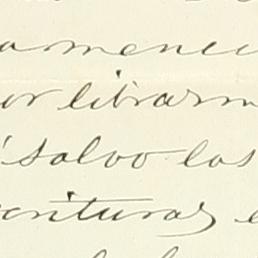 amenci
or librarm
salvo las
crituras e